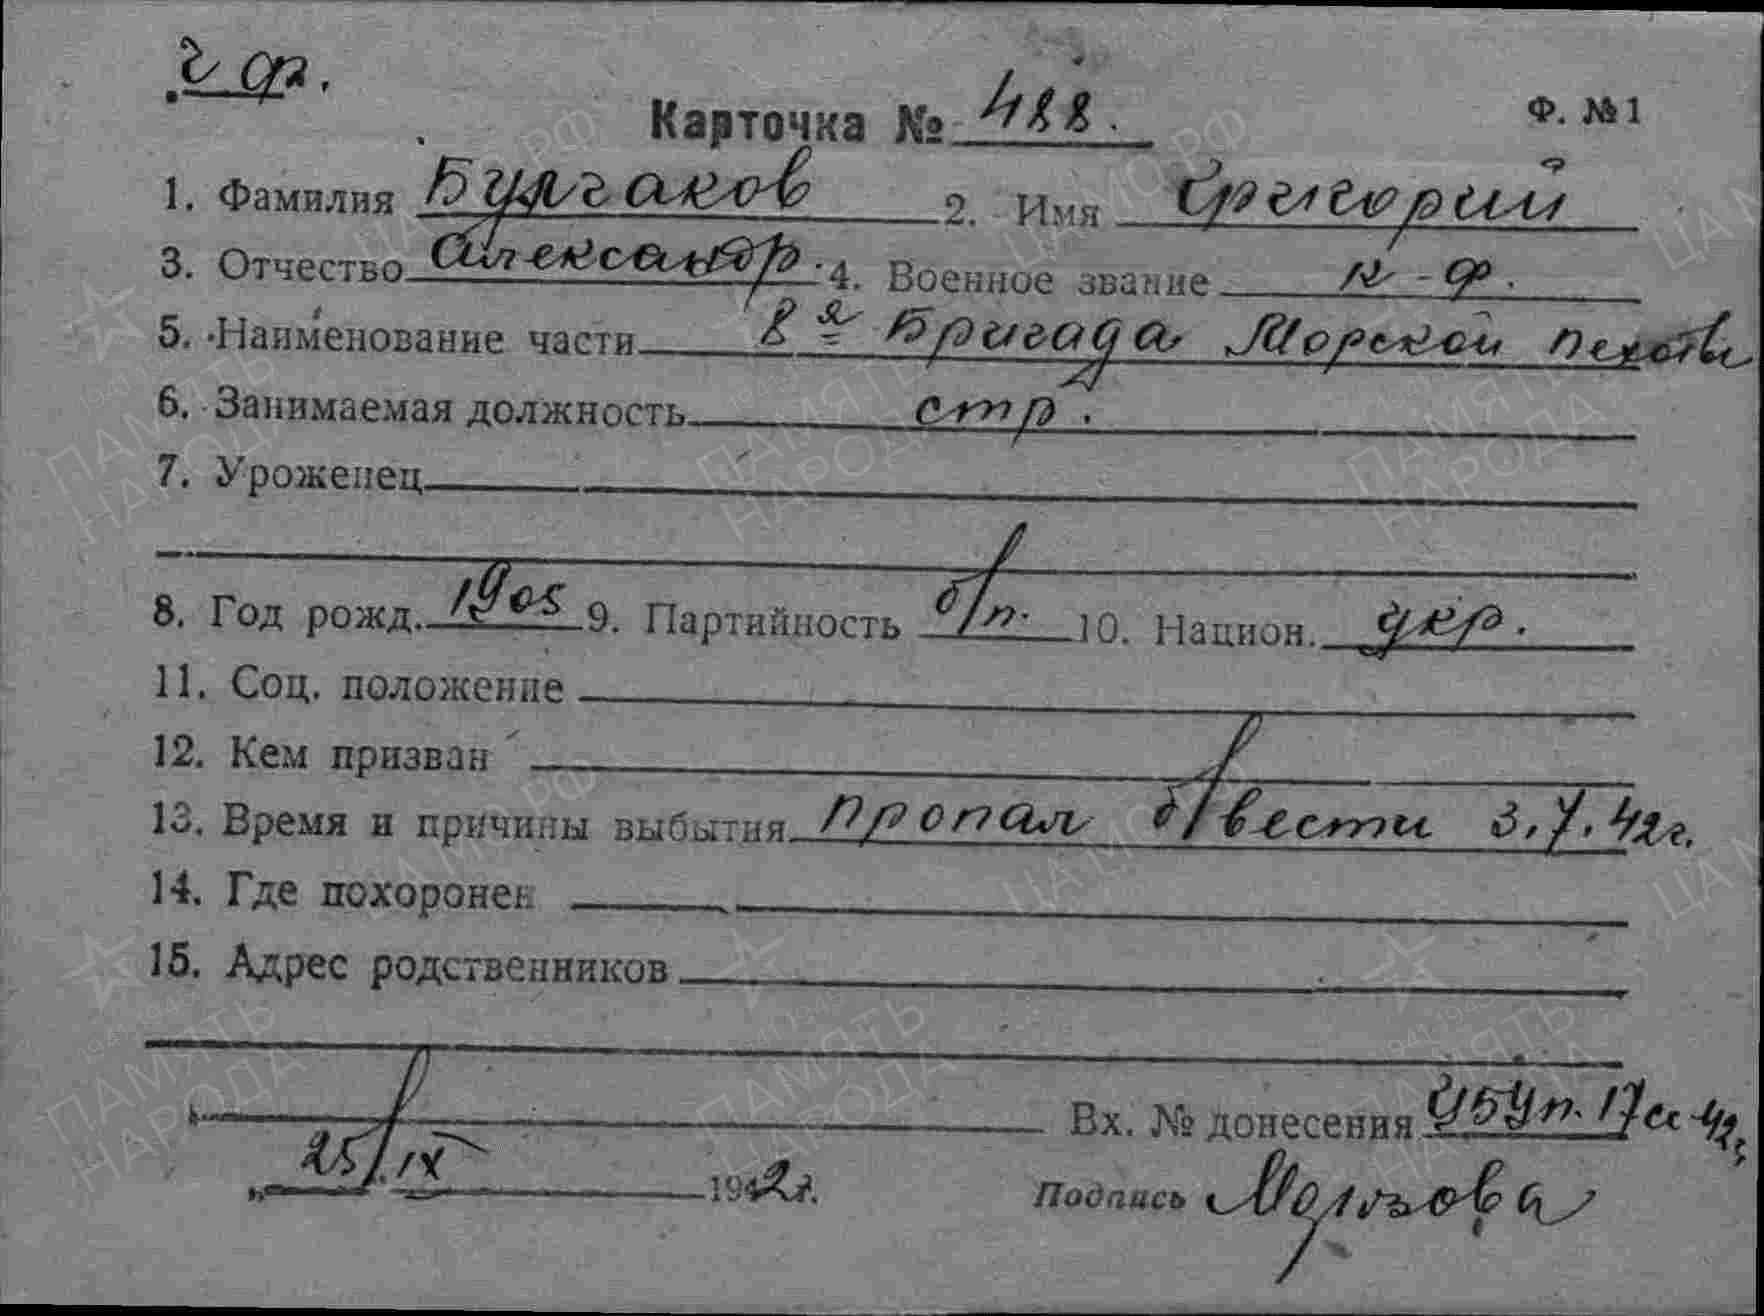 Карточка № 488.
Ф. №1
1. Фамилия Булгаков 2. Имя Григорий
3. Отчество Александр. 4. Военное звание к-ф.
5. Наименование части 8я Бригада Морской пехоты
6. Занимаемая должность стр.
7. Уроженец
8. Год рожд. 1905 9. Партийность б/п. 10. Национ. укр.
11. Соц. положение
12. Кем призван
13. Время и причины выбытия пропал б/вести 3.7.42г.
14. Где похоронен
15. Адрес родственников
Вх. № донесения
25/IX 1942г.
Подпись
ЦАМО.РФ
ПАМЯТЬ НАРОДА